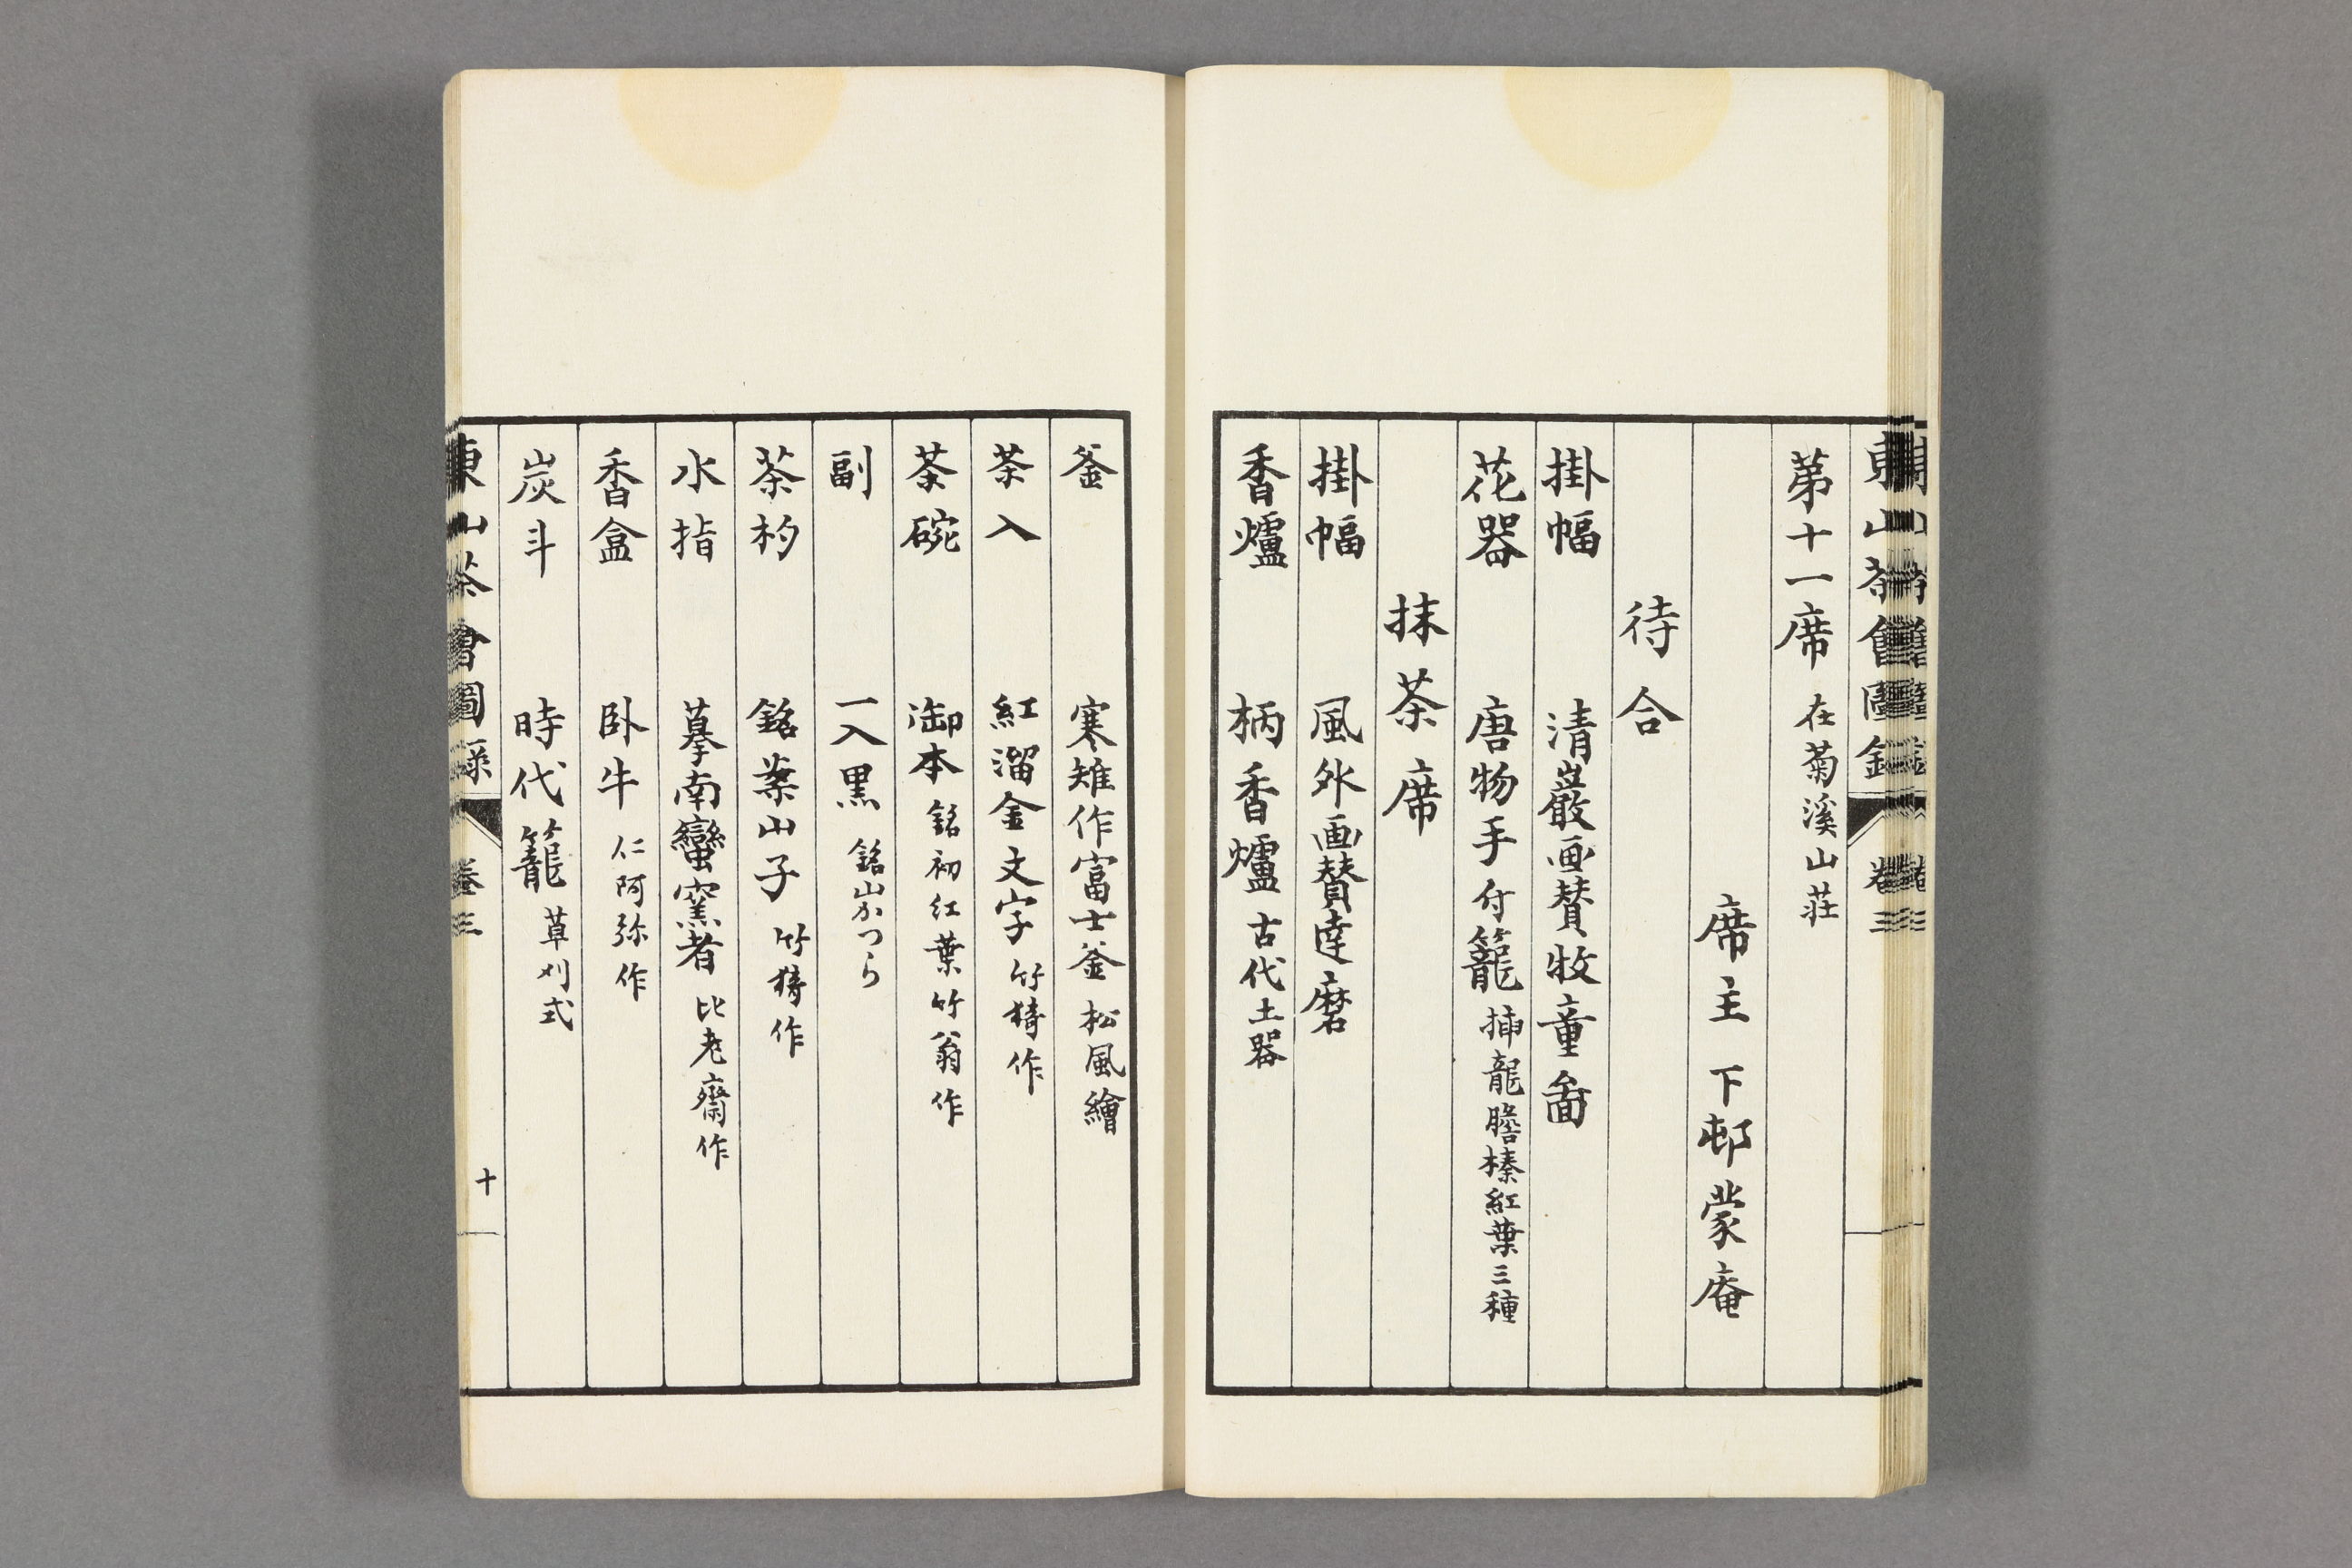 東山茶會圖録 卷三
第十一席 在菊溪山莊
席主 下邨蒙庵
待合
掛幅 清巖画賛牧童畫
花器 唐物手付籠 挿龍膽榛紅葉三種
抹茶席
掛幅 風外画賛達磨
香爐 柄香爐 古代土器
釜 寒雉作富士釜 松風繪
茶入 紅溜金文字 竹猗作
茶碗 御本 銘初紅葉竹翁作
副 一入黒 銘山かつら
茶杓 銘案山子 竹猗作
水指 摹南蠻窯者 比老齋作
香盒 卧牛 仁阿弥作
炭斗 時代籠 草刈式
東山茶會圖録 卷三 十